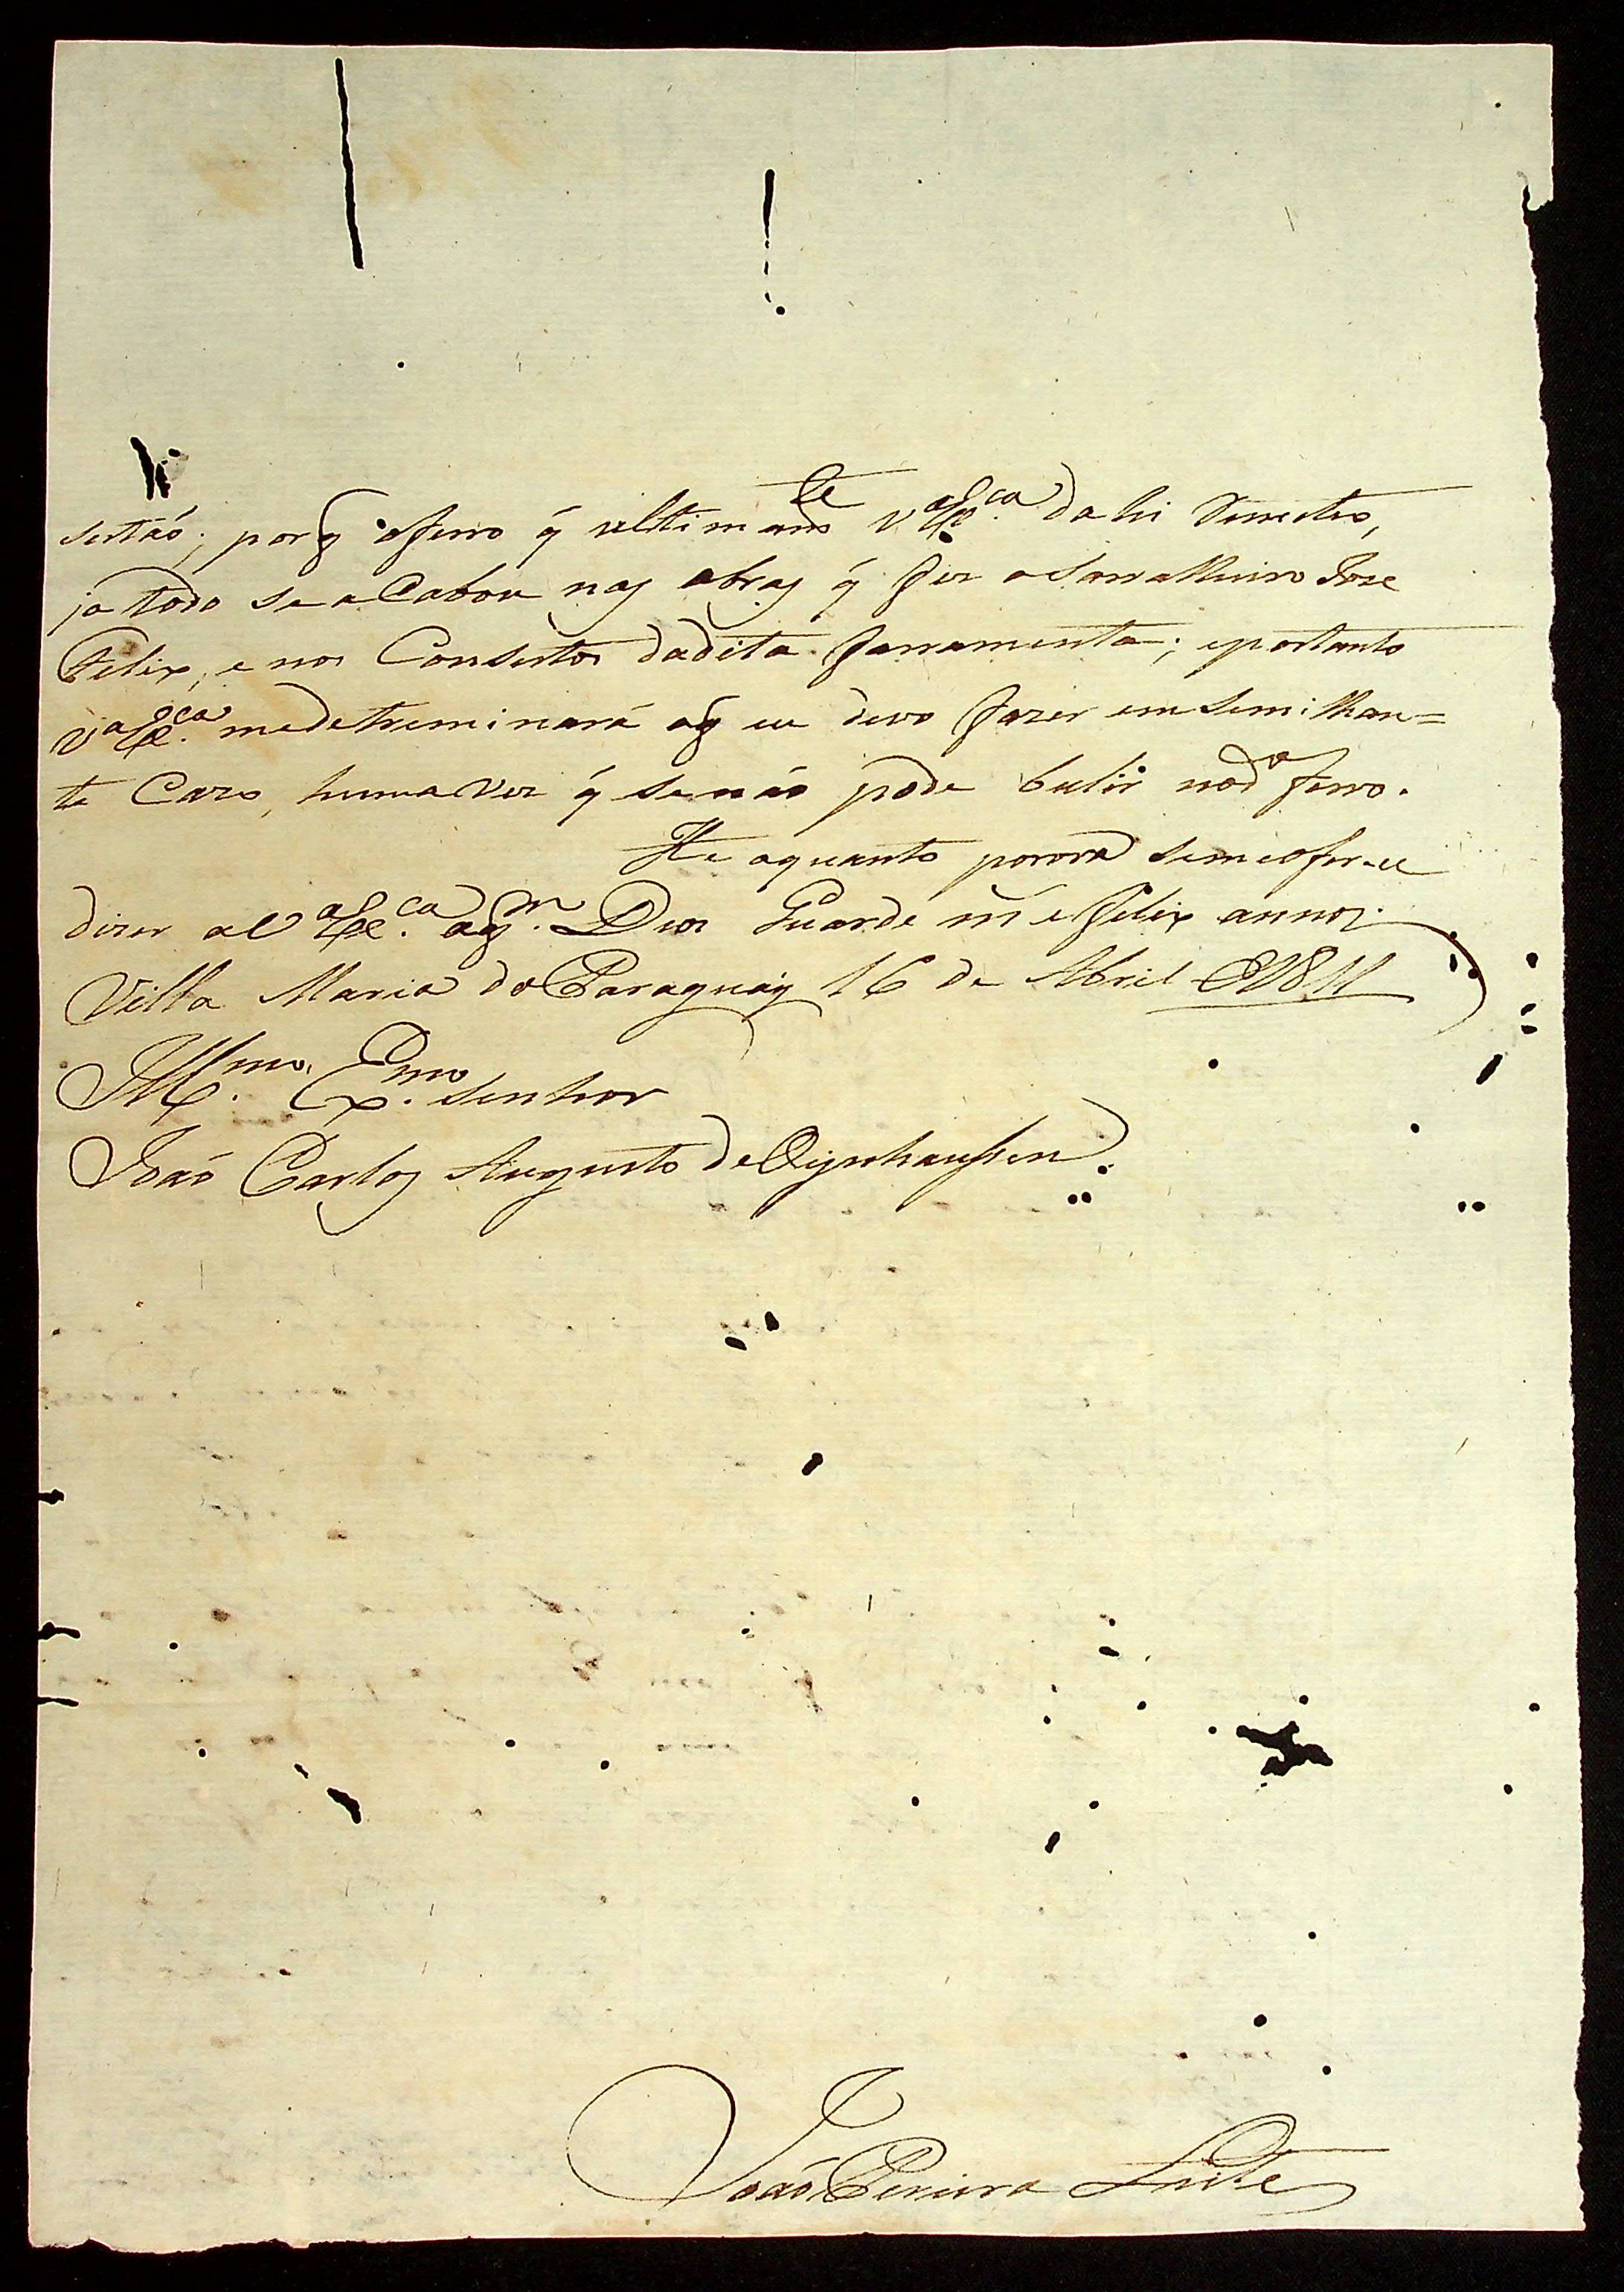 sertaõ; porq̃ oferro q̃ ulltimam.te V.aEx.ca dahi Remeteo,
ja todo se aCabou nas obras q̃ fez o Sarralheiro Joze
Felix, e nos Consertos dadita farramenta; eportanto
V.aEx.ca medetreminará oq̃ eu devo fazer em Semilhan=
te Cazo, huma vez q̃ senaõ pode bulir nod.o ferro.
He oquanto porora semeoferece
dizer aV.aEx.ca aq.m Deos Guarde m.s e felix annos.
Villa Maria do Paraguay 16 de Abril de 1811
Ill.mo Ex.mo Senhor
Joaõ Carlos Augusto de Oeynhaussen.
Joaõ Pereira Leite